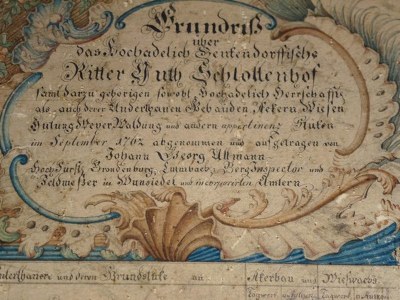 Grundriß
über
das Hochadelich Benkendorffische
Ritter Guth Schlottenhof
samt darzu gehörigen sowohl Hochadelich Herrschafftl.
als auch derer Underthanen Gebäuden Äckern Wiesen
Hutung Weyer Waldung und andern appertinenz Stücken
im September 1762 abgenommen und aufgetragen von
Johann Georg Ullmann
HochFürstl. Brandenburg. Culmbach. Berg Inspector und
Feldmeßer in Wunsiedel und incorporirten Ämtern
Underthanen und deren Grundstücke an: Ackerbau und Wießwachs